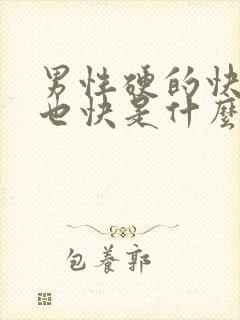 男性硬的快
也快是什麼
包養郭